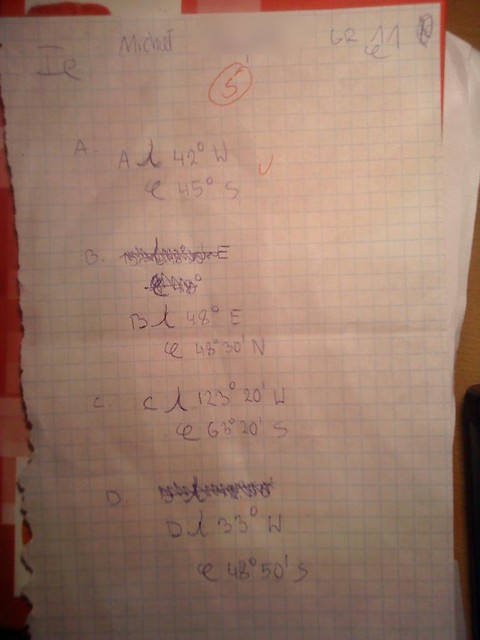 Michał
Ie
5
A. A λ 42° W
φ 45° S
B.
E
B λ 48° E
φ 48°30' N
C. C λ 123°20' W
φ 63°20' S
D.
D λ 33° W
φ 48°50' S